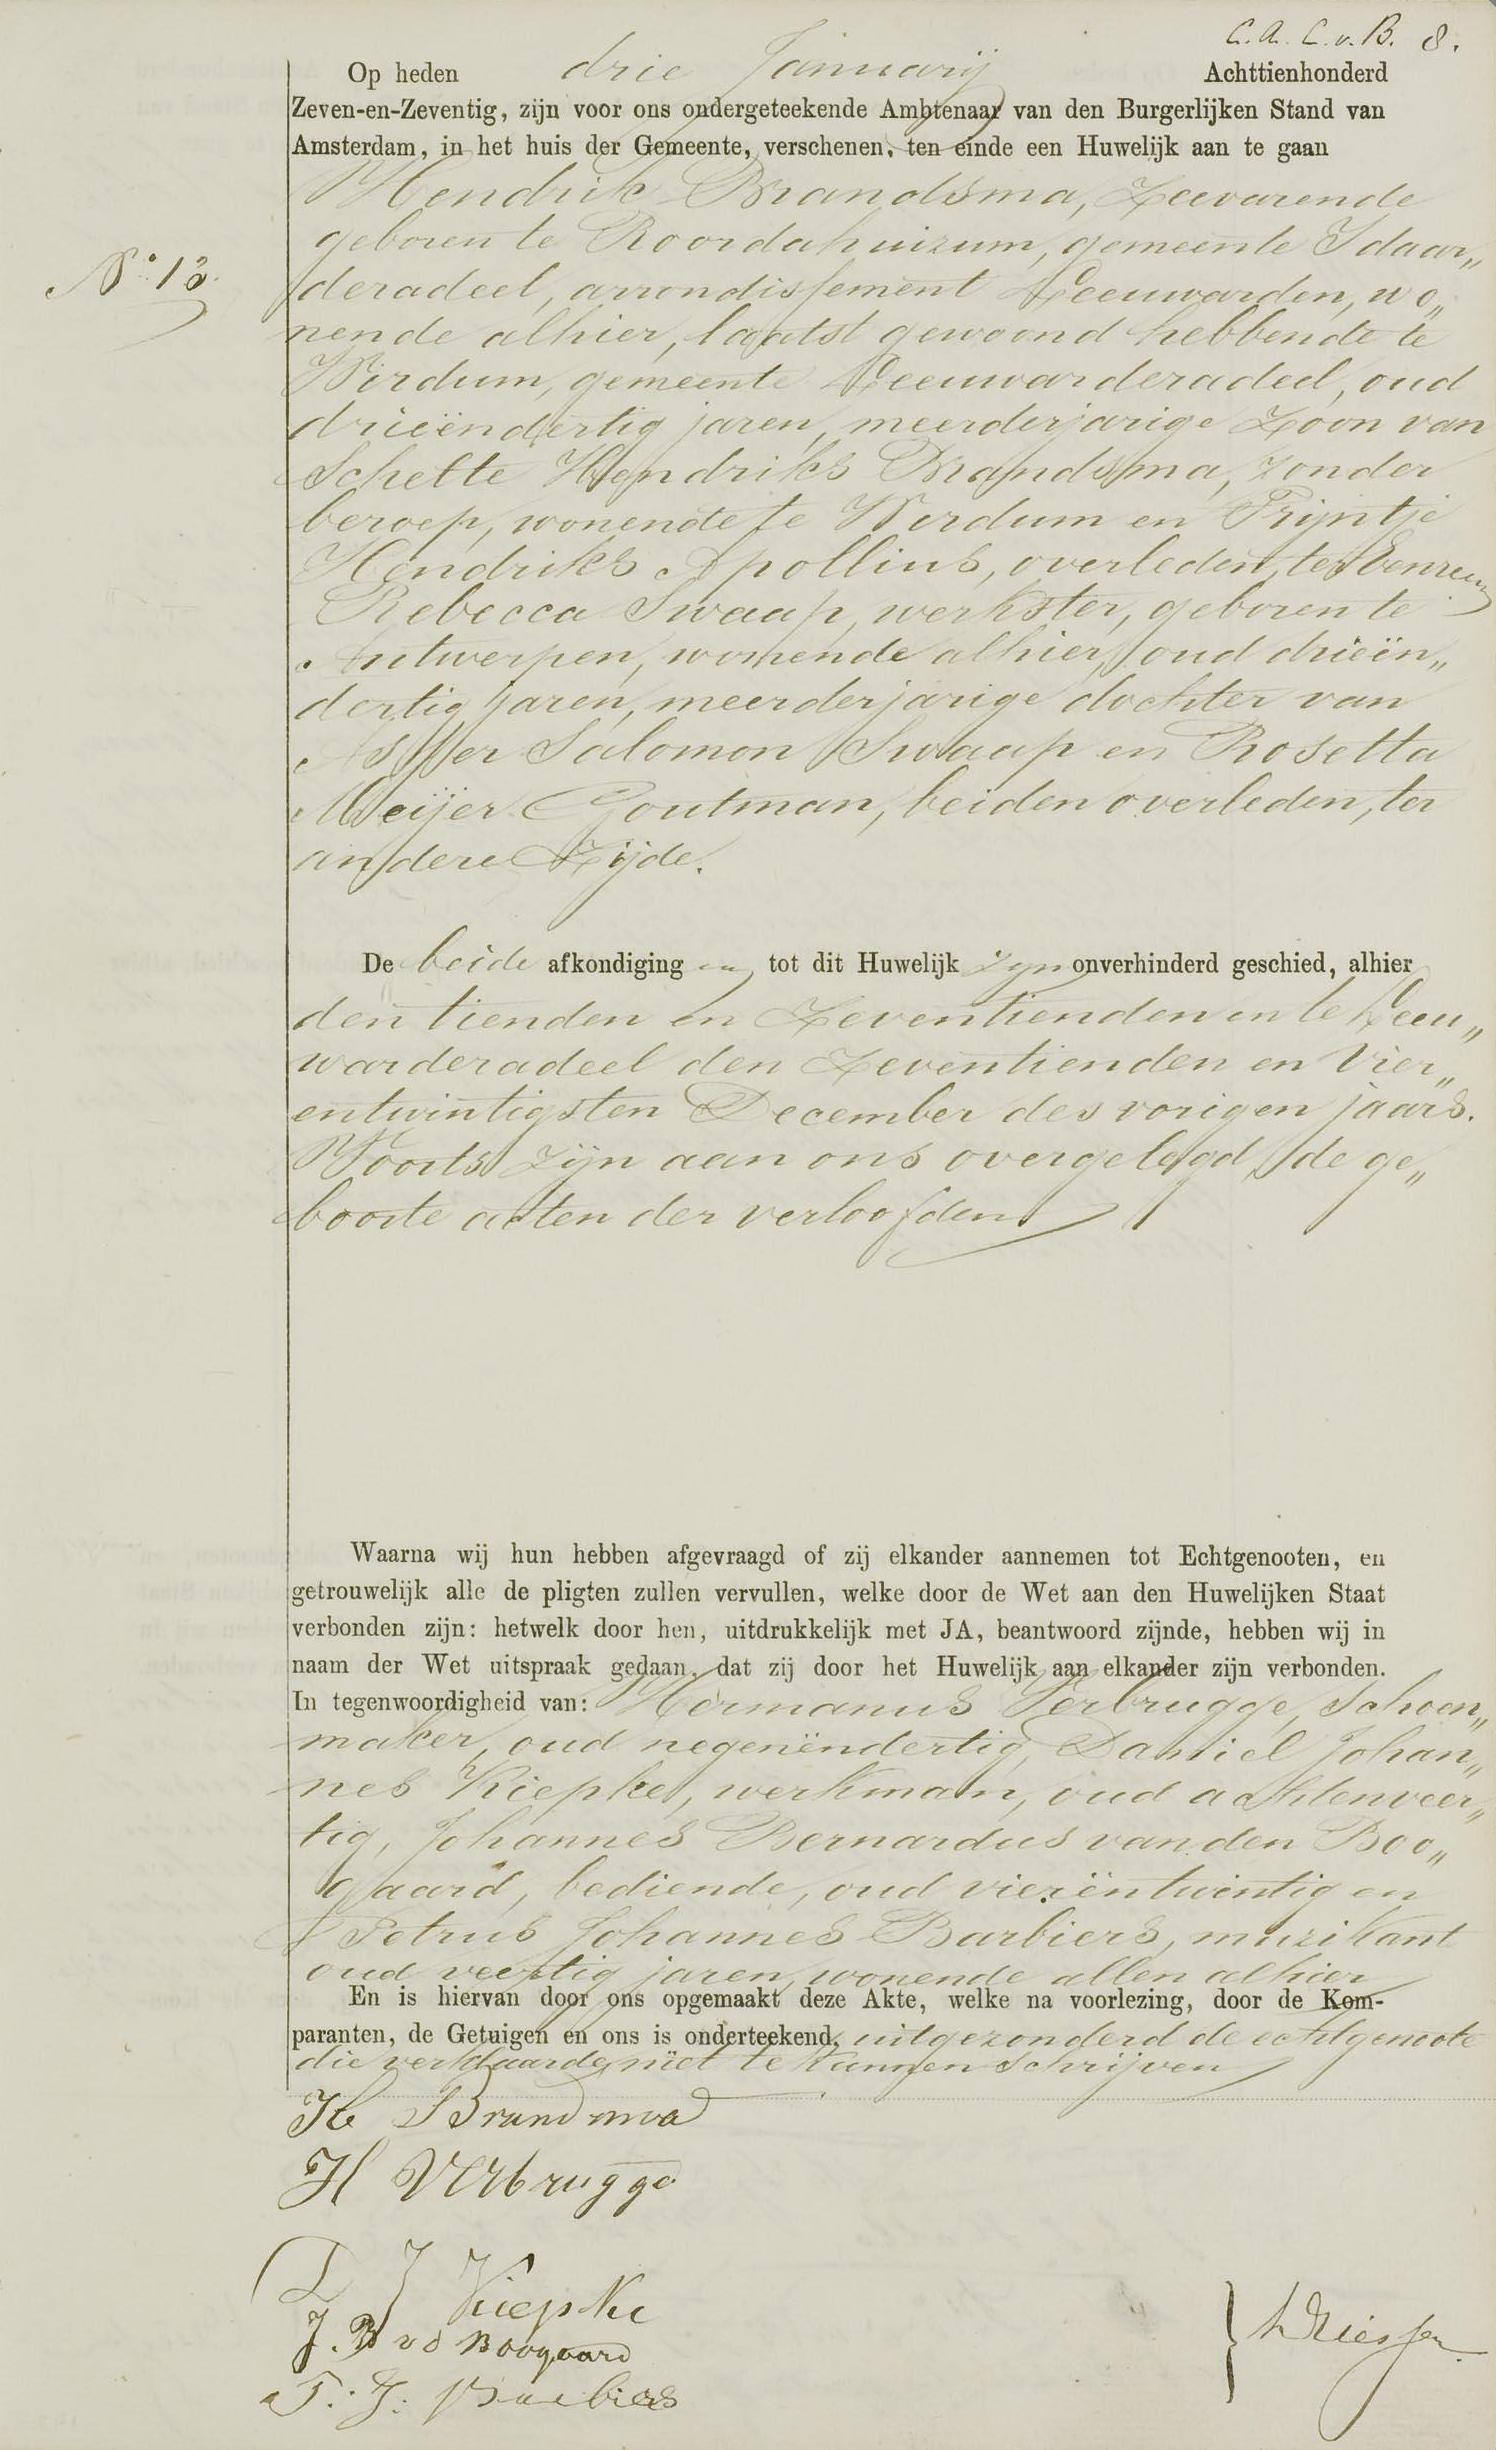 C. A. C. v. B. 8.
Op heden drie Januarij Achttienhonderd
Zeven-en-Zeventig, zijn voor ons ondergeteekende Ambtenaar van den Burgerlijken Stand van
Amsterdam, in het huis der Gemeente, verschenen, ten einde een Huwelijk aan te gaan
Hendrik Brandsma, Zeevarende
geboren te Roordahuizum, gemeente Idaar„
No. 13.
deradeel, arrondissement Leeuwarden, wo„
nende alhier, laatst gewoond hebbende te
Wirdum, gemeente Leeuwarderadeel, oud
drieëndertig jaren, meerderjarige Zoon van
Schelte Hendriks Brandsma, zonder
beroep, wonende te Wirdum en Trijntje
Hendriks Apollius, overleden, ter eenre en
Rebecca Swaap, werkster, geboren te
Antwerpen, wonende alhier, oud drieën„
dertig jaren, meerderjarige dochter van
Asser Salomon Swaap en Rosetta
Meijer Goutman, beiden overleden, ter
andere Zijde.
De beide afkondiging en tot dit Huwelijk zijn onverhinderd geschied, alhier
den tienden en Zeventienden en te Leeu„
warderadeel den Zeventienden en Vier„
entwintigsten December des vorigen jaars.
Voorts zijn aan ons overgelegd, de ge„
boorte acten der verloofden
Waarna wij hun hebben afgevraagd of zij elkander aannemen tot Echtgenooten, en
getrouwelijk alle de pligten zullen vervullen, welke door de Wet aan den Huwelijken Staat
verbonden zijn: hetwelk door hen, uitdrukkelijk met JA, beantwoord zijnde, hebben wij in
naam der Wet uitspraak gedaan, dat zij door het Huwelijk aan elkander zijn verbonden.
In tegenwoordigheid van: Hermanus Verbrugge, Schoen„
maker, oud negenëndertig, Daniel Johan„
nes Kiepke, werkman, oud achtenveer„
tig, Johannes Bernardus van den Boo„
gaard, bediende, oud vierëntwintig en
Petrus Johannes Barbiers, muzikant
oud veertig jaren, wonende allen alhier
En is hiervan door ons opgemaakt deze Akte, welke na voorlezing, door de Kom-
paranten, de Getuigen en ons is onderteekend, uitgezonderd de echtgenoote
die verklaarde niet te kunnen schrijven
H Brandsma
H Verbrugge
D J Kiepke
J. B v d Boogaard
P. J. Barbiers